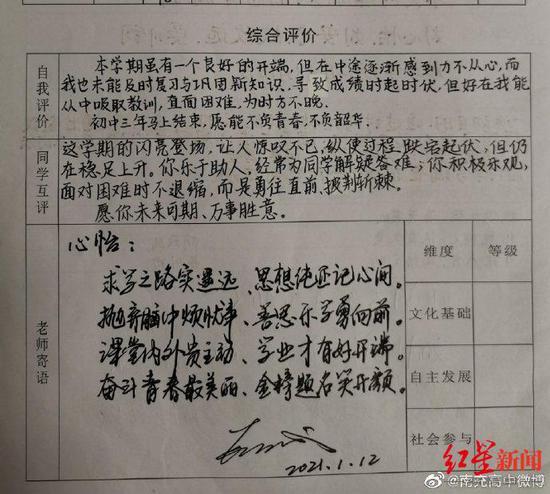 综合评价
自我评价
本学期虽有一个良好的开端，但在中途逐渐感到力不从心，而
我也未能及时复习与巩固新知识，导致成绩时起时伏，但好在我能
从中吸取教训，直面困难，为时方不晚。
初中三年马上结束，愿能不负青春，不负韶华。
同学互评
这学期的闪亮登场，让人惊叹不已，纵使过程跌宕起伏，但仍
在稳足上升。你乐于助人，经常为同学解疑答难；你积极乐观，
面对困难时不退缩，而是勇往直前，披荆斩棘。
愿你未来可期、万事胜意。
老师寄语
心怡：
求学之路实遥远、思想纯正记心间。
抛弃脑中烦忧事、善思乐学勇向前。
课堂内外贵主动、学业才有好开端。
奋斗青春最美丽、金榜题名笑开颜。
2021.1.12
维度
等级
文化基础
自主发展
社会参与
红星新闻
@南充高中微博